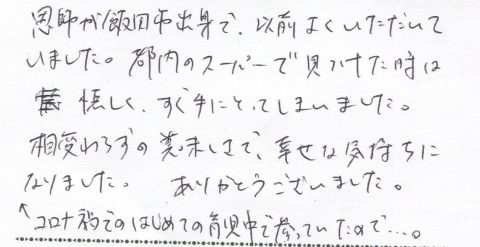 恩師が飯田市出身で、以前よくいただいて
いました。都内のスーパーで見つけた時は
懐しく、すぐ手にとってしまいました。
相変わらずの美味しさで、幸せな気持ちに
なりました。 ありがとうございました。
↑コロナ禍でのはじめての育児中で参っていたので…。